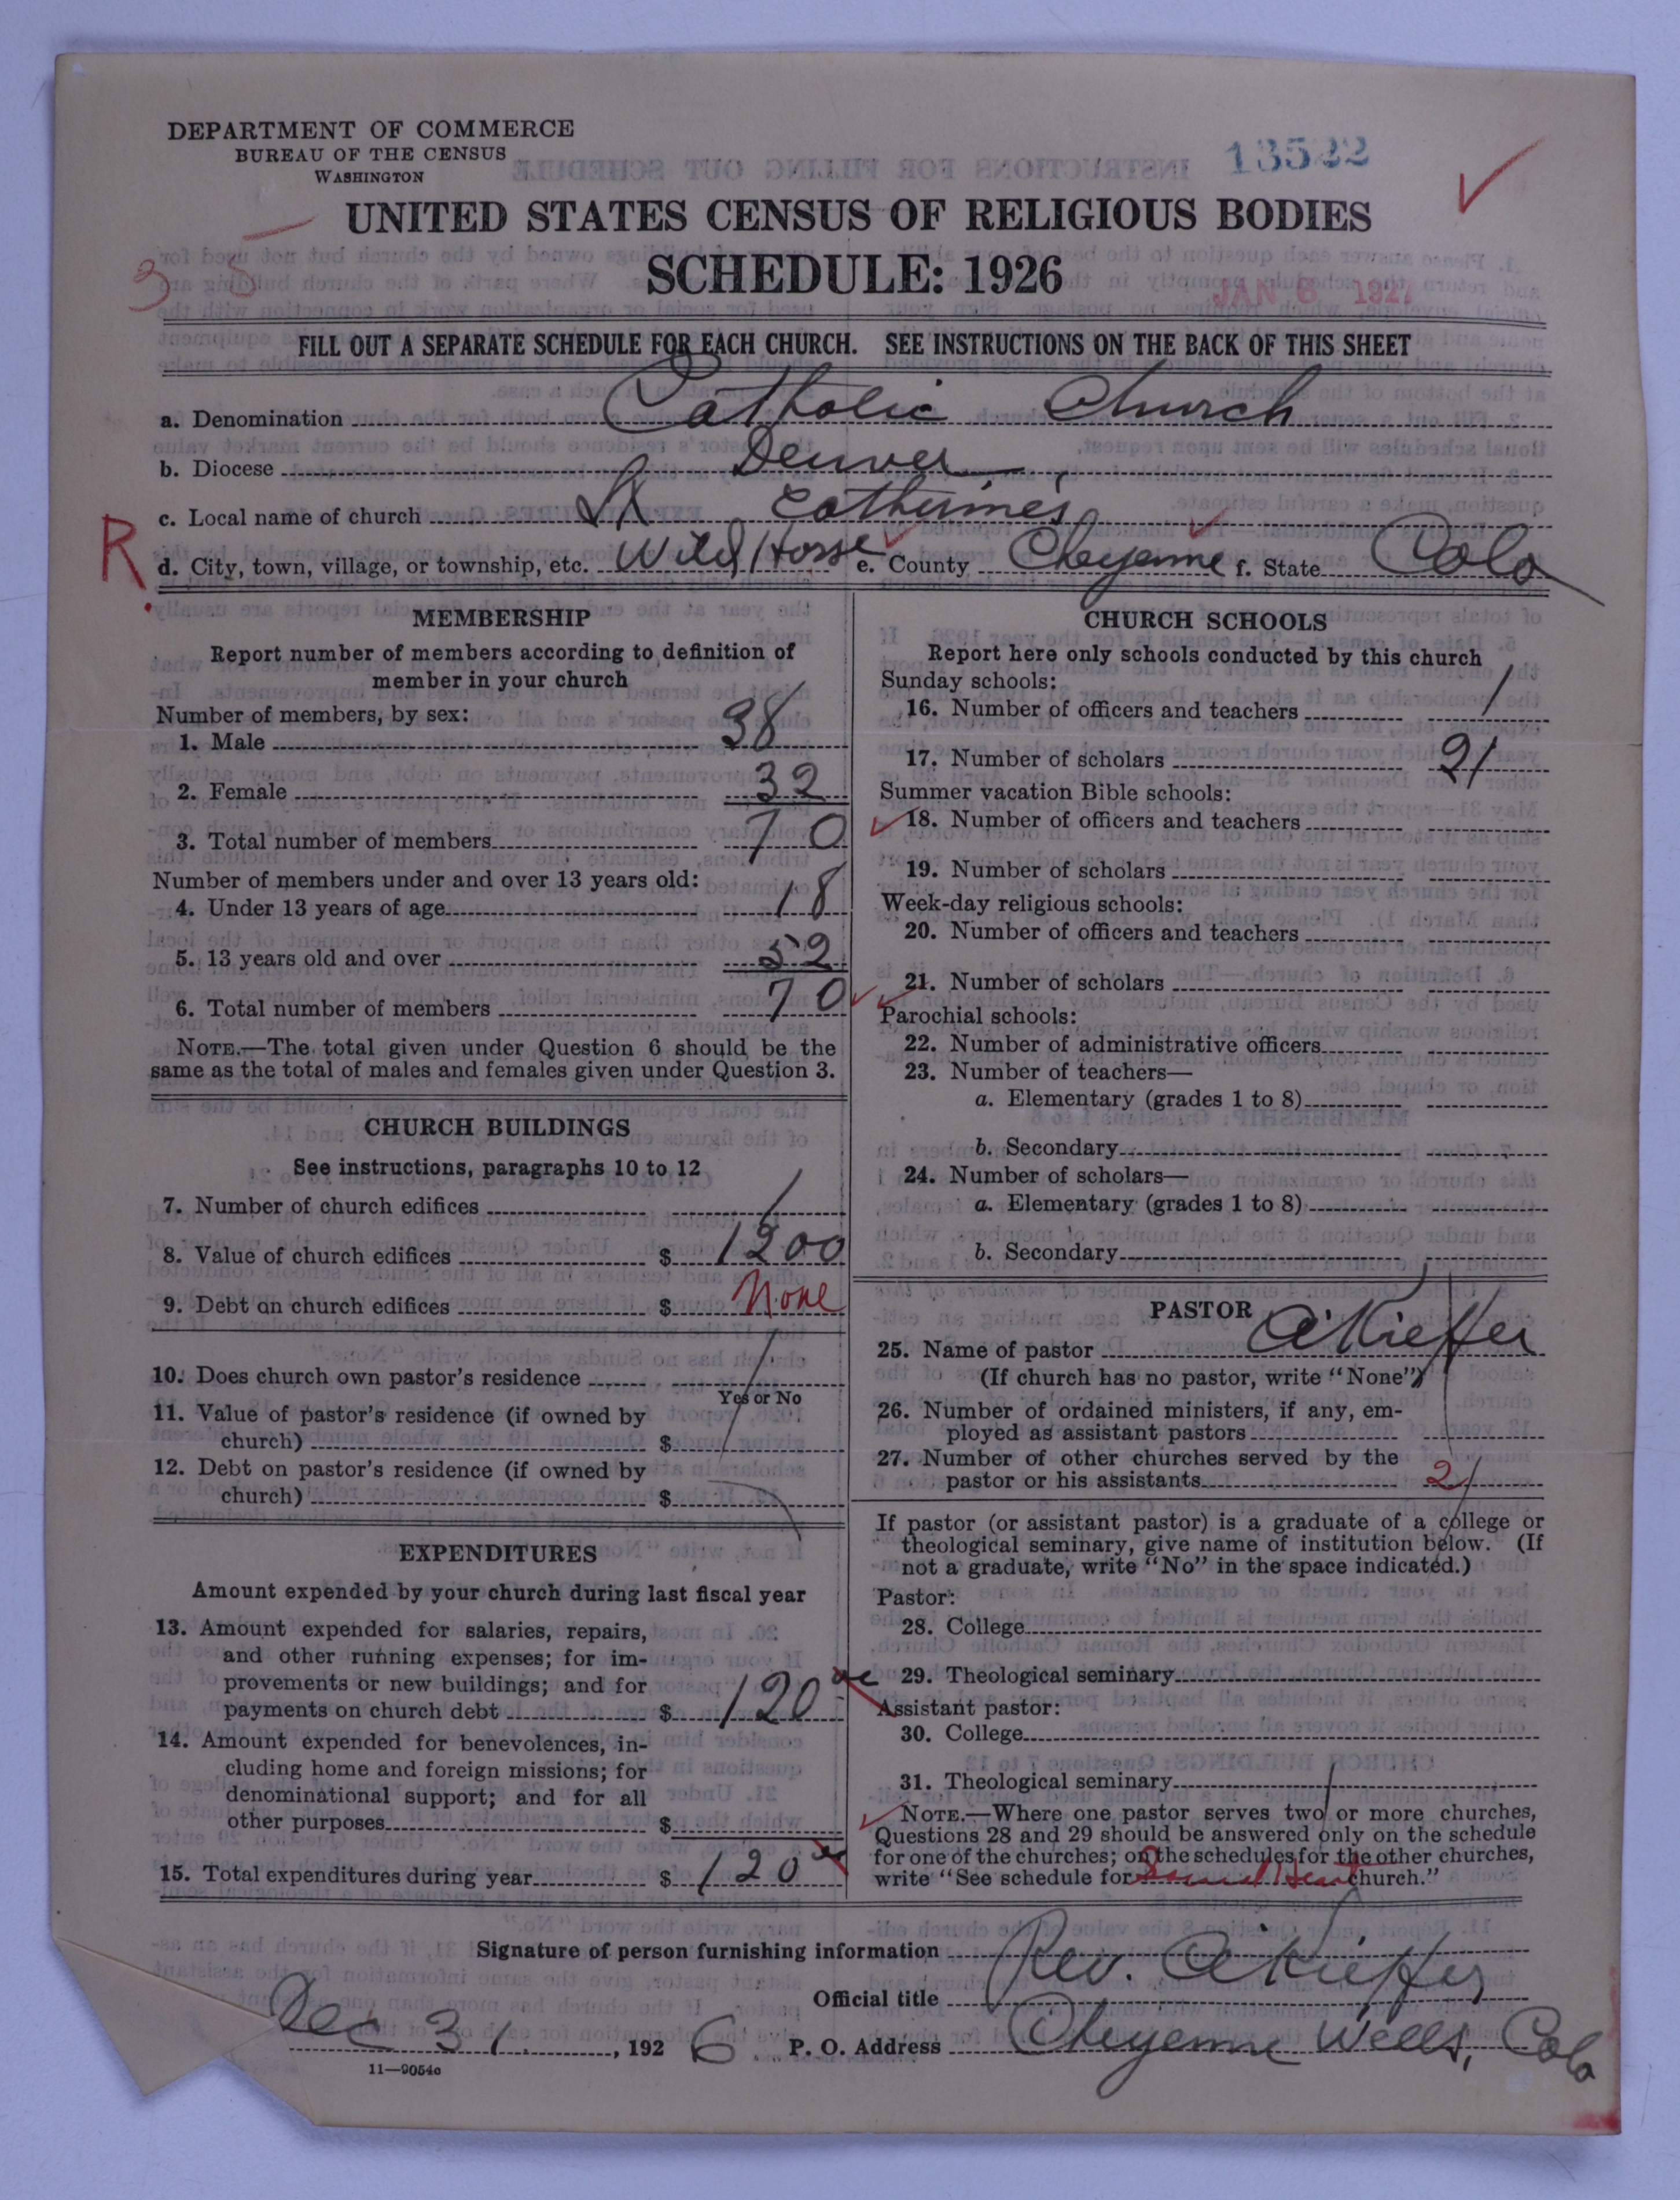 DEPARTMENT OF COMMERCE
BUREAU OF THE CENSUS
WASHINGTON
13522
UNITED STATES CENSUS OF RELIGIOUS BODIES
SCHEDULE: 1926
3 5
JAN 6 1927
FILL OUT A SEPARATE SCHEDULE FOR EACH CHURCH. SEE INSTRUCTIONS ON THE BACK OF THIS SHEET
a. Denomination Catholic Church
b. Diocese Denver
c. Local name of church St Catherine's
R
d. City, town, village, or township, etc. Wild Horse e. County Cheyenne f. State Colo
MEMBERSHIP
Report number of members according to definition of
member in your church
Number of members, by sex:
1. Male 38
2. Female 32
3. Total number of members 70
Number of members under and over 13 years old:
4. Under 13 years of age 18
5. 13 years old and over 52
6. Total number of members 70
NOTE.—The total given under Question 6 should be the
same as the total of males and females given under Question 3.
CHURCH BUILDINGS
See instructions, paragraphs 10 to 12
7. Number of church edifices 1
8. Value of church edifices $ 1200
9. Debt on church edifices $ None
10. Does church own pastor's residence
Yes or No
11. Value of pastor's residence (if owned by
church) $
12. Debt on pastor's residence (if owned by
church) $
EXPENDITURES
Amount expended by your church during last fiscal year
13. Amount expended for salaries, repairs,
and other running expenses; for im-
provements or new buildings; and for
payments on church debt $ 120
14. Amount expended for benevolences, in-
cluding home and foreign missions; for
denominational support; and for all
other purposes $
15. Total expenditures during year $ 120
CHURCH SCHOOLS
Report here only schools conducted by this church
Sunday schools:
16. Number of officers and teachers 1
17. Number of scholars 21
Summer vacation Bible schools:
18. Number of officers and teachers
19. Number of scholars
Week-day religious schools:
20. Number of officers and teachers
21. Number of scholars
Parochial schools:
22. Number of administrative officers
23. Number of teachers—
a. Elementary (grades 1 to 8)
b. Secondary
24. Number of scholars—
a. Elementary (grades 1 to 8)
b. Secondary
PASTOR
25. Name of pastor A Kieffer
(If church has no pastor, write "None")
26. Number of ordained ministers, if any, em-
ployed as assistant pastors
27. Number of other churches served by the
pastor or his assistants 2
If pastor (or assistant pastor) is a graduate of a college or
theological seminary, give name of institution below. (If
not a graduate, write "No" in the space indicated.)
Pastor:
28. College
29. Theological seminary
Assistant pastor:
30. College
31. Theological seminary
NOTE.—Where one pastor serves two or more churches,
Questions 28 and 29 should be answered only on the schedule
for one of the churches; on the schedules for the other churches,
write "See schedule for church."
Signature of person furnishing information Rev. A Kieffer
Official title
Dec 31, 1926 P. O. Address Cheyenne Wells, Colo
11—9054c